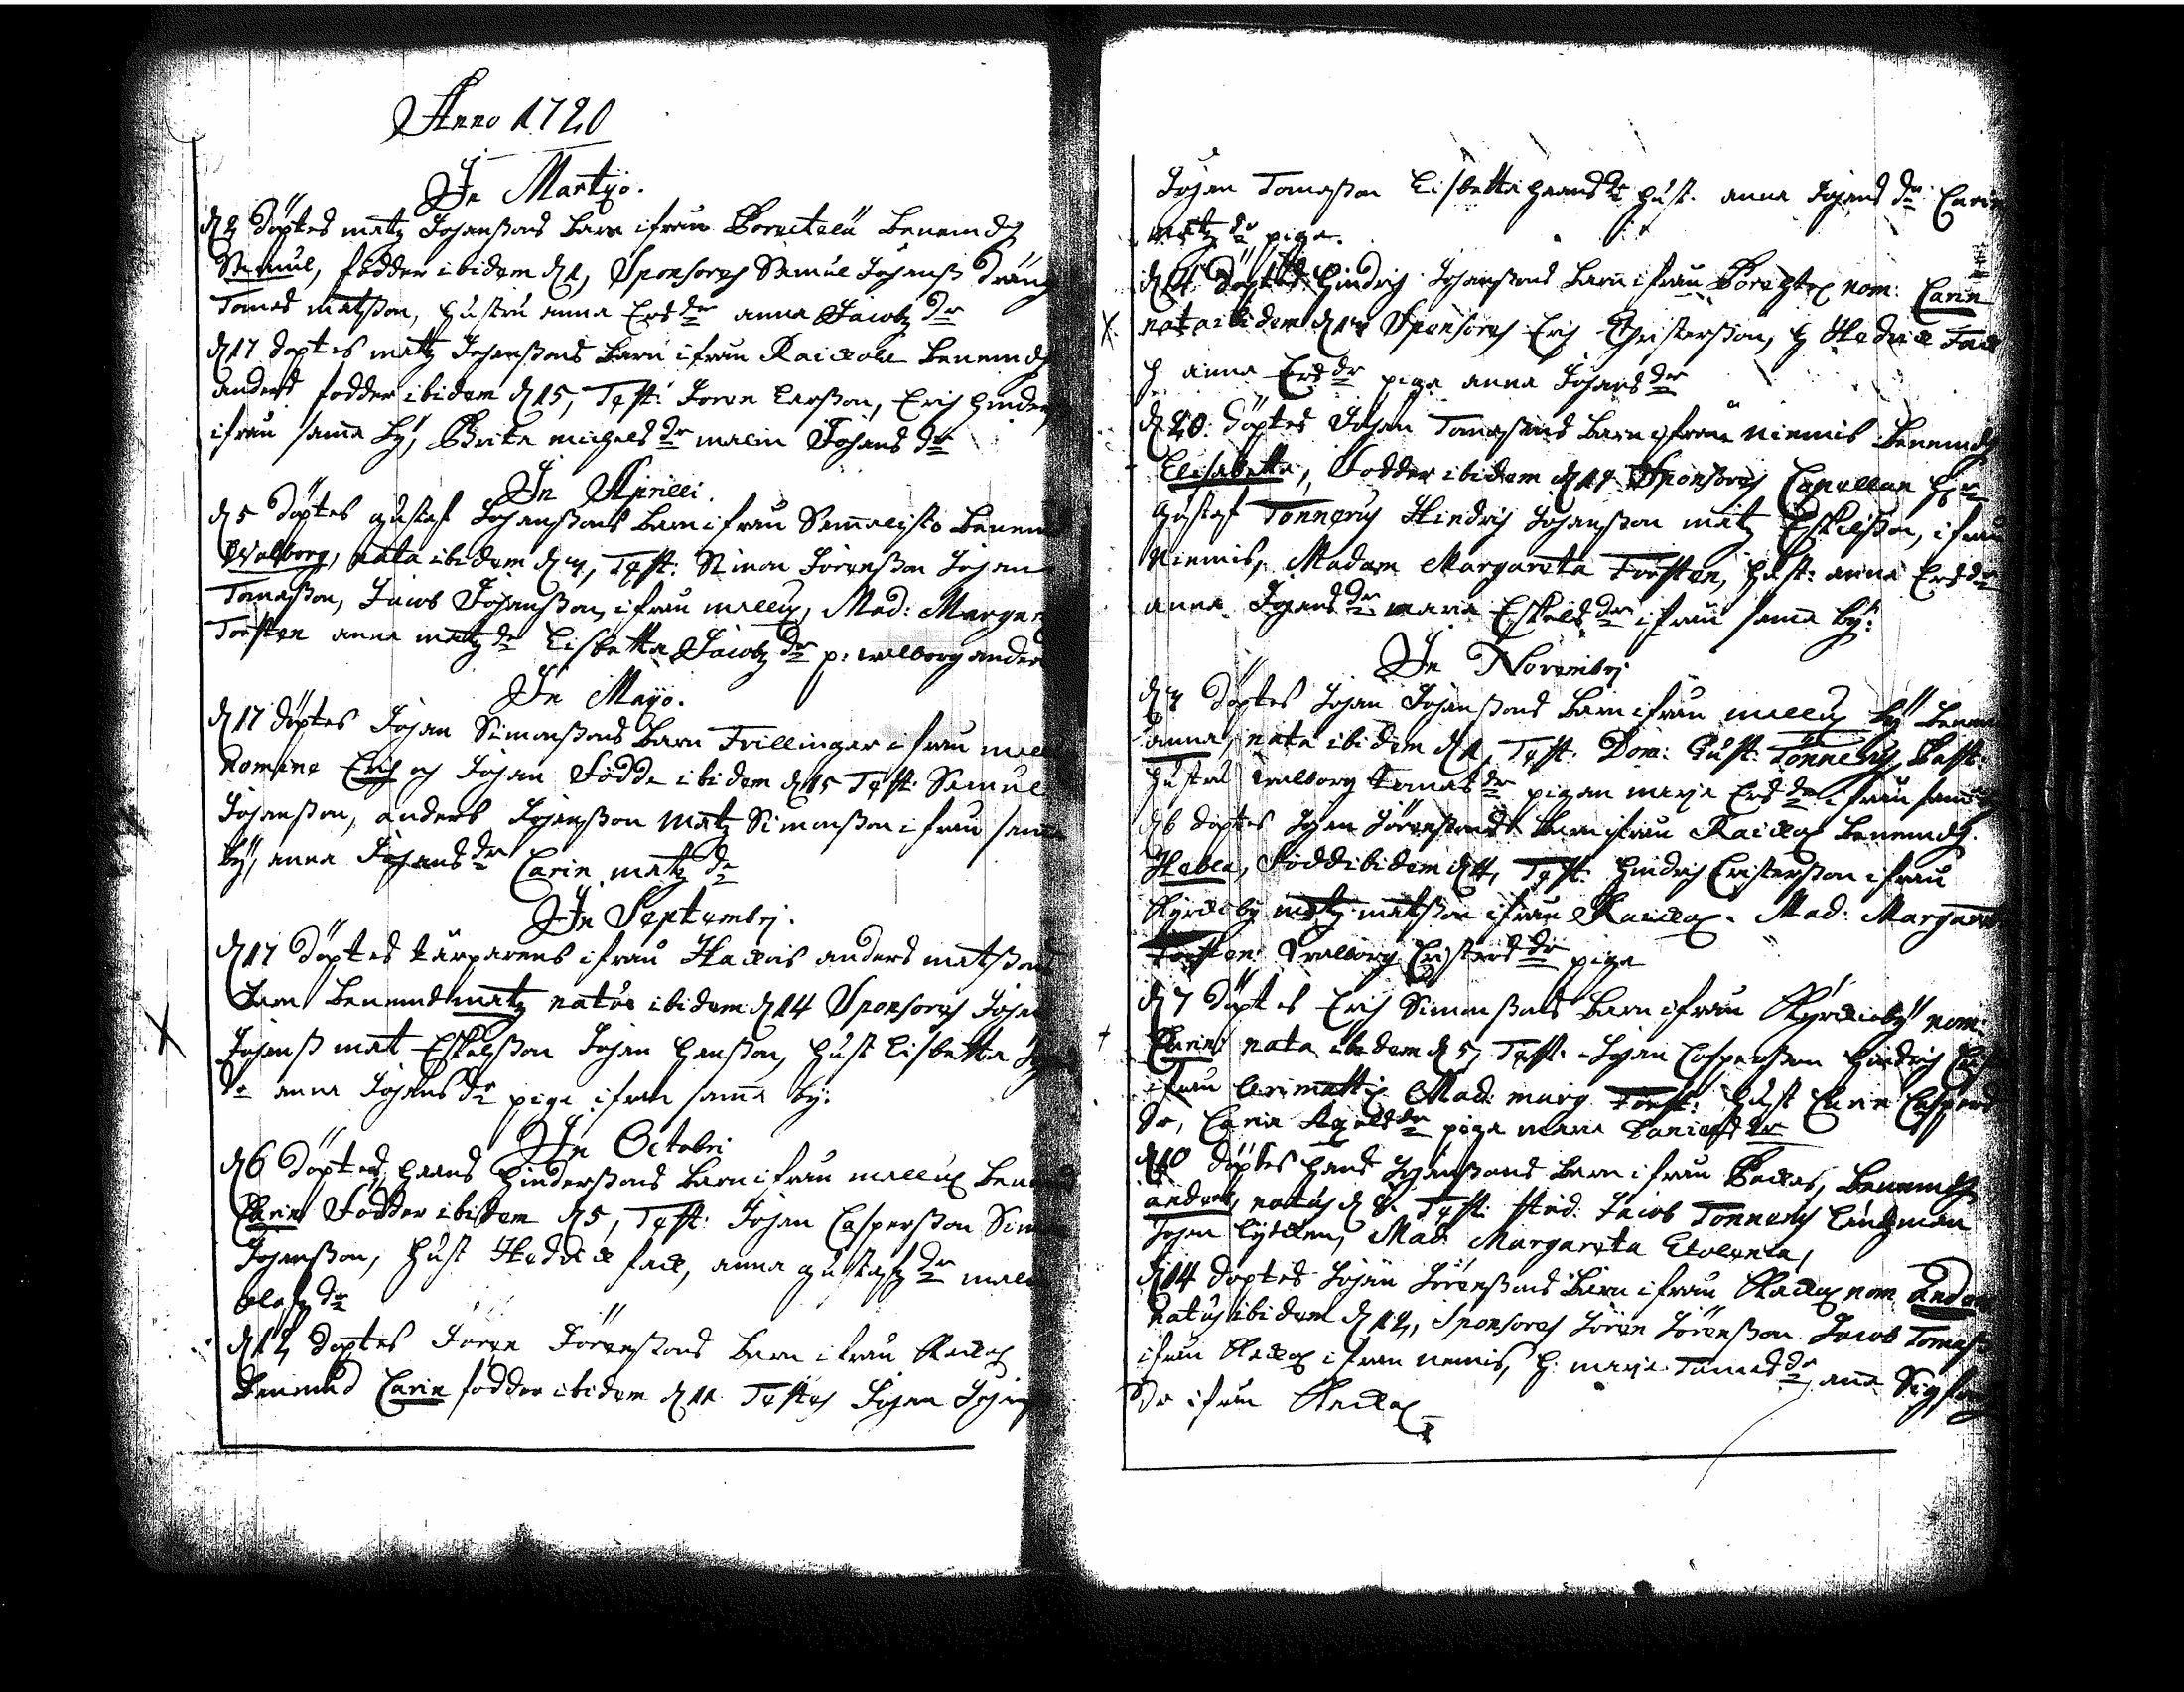 Anno 1720
In Martyo.
d 2 döptes matz Johanßons Barn ifrån Benemdh
Samul, födder ibidem d 1, Sponsores Samul Johanß dräng
Tomas matßon, hustru anna Ersdr anna Jacobzdr
d 17 döptes matz Johanßons Barn ifrån Raickola Benemdh
anders födder ibidem d 15, Test: Joren Larßon, Erich hinders
ifrån sama by, Brita michelsdr malin Johansdr
In Aprilli.
d 5 döptes gustaf Johanßons Barn ifrån Samalisto Benem
Walborg, nata ibidem d 4, Test: Simon Jörenßon Johan
Tomaßon, Jacob Johanßon, ifrån mellux, Mad: Margar
Forsten anna matzdr Lisbetta Jacobzdr p: walborg anders
In Mayo.
d 17 döptes Johan Simonßons Barn Tvillingar ifrån mell
Nomine Erich och Johan Födde ibidem d 15 Test: Samul
Johanßon, anders Johanßon Matz Simonßon ifrån sama
by, anna Johansdr Carin matzdr
In Septembrj.
d 17 döptes ifrån anders matßons
Barn Benemd matz natus ibidem d 14 Sponsores Johan
Johanß mat Eskelßon Johan hanßon, hust Lisbetta Joh
dr anna Johansdr piga ifrån sama by:
In Octobri
d 6 döptes, haans hinderßons Barn ifrån mellux Benemd
Carin Födder ibidem d 5, Test: Johan Casperßon Simon
Johanßon, hust Hedvick fack, anna gustafzdr mal
olafzdr
d 12 döptes Joren Jörenßons Barn ifrån
Benemd Carin födder ibidem d 11 Testes Johan Johanß
Johan Tomaßon Lisbetta haansdr hust. anna Johansdr Carin
matzdr piga.
d 14 döptes hindrich Johanßons Barn ifrån nom: Carin
nata ibidem d 12 Sponsores Erich Christerßon, h Hedvick Fack
h anna Ersdr piga anna Johansdr
d 20. döptes Johan Tomaßons Barn ifrån Niemis Benemdh
Elisabetta, Födder ibidem d 19 Sponsores Capellan her
gustaf Tonnerus Hindrich Johanßon matz Eskilßon, ifrån
Niemis, Madam Margareta Forsten, hust: anna Ersdr
anna Johansdr maria Eskelsdr ifrån sama by:
In Novembrj
d 4 döptes Johan Johanßons Barn ifrån mellux by Benem
anna, nata ibidem d 1, Test: Dom: Gust: Tonnerus, Past:
hustru walborg Tomasdr pigan marja Ersdr ifrån sam
d 6 döptes Johan Jörenßons Barn ifrån Raickox Benemdh.
Hebla, Född ibidem d 4, Test: hindrich Cristerßon ifrån
Kyrckoby matz matßon ifrån Raickox. Mad: Margareta
Forsten Walborg Cristersdr piga
d 7 döptes Erich Simonßons Barn ifrån Kyrckoby nom:
Carin nata ibidem d 5, Test: Johan Casperßon hindrich
ifrån Mad: marg Forst: hust Carin Caspers
dr, Caria Axelsdr piga maria Danielsdr
d 10 döptes hans Johanßons Barn ifrån Backas, Benemdh
anders, natus d 8. Test: stud. Jacob Tonnerus Länsman
Johan Lydkken, Mad: Margareta
d 14 döptes Johan Jörenßons Barn ifrån nom anders
Natus ibidem d 12, Sponsores Joren Jörenßon Jacob Tomaß
ifrån ifrån nemis, h: marja Tomasdr, ana Sigfrids
dr ifrån